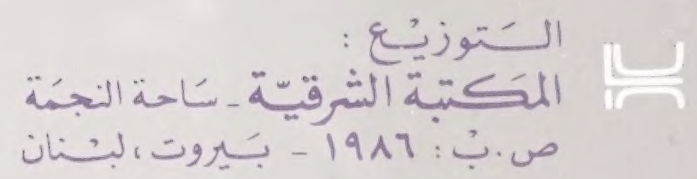 التوزيع :
المكتبة الشرقيّة - سَاحة النجمَة
ص.ب : ١٩٨٦ - بَيروت ، لبنان